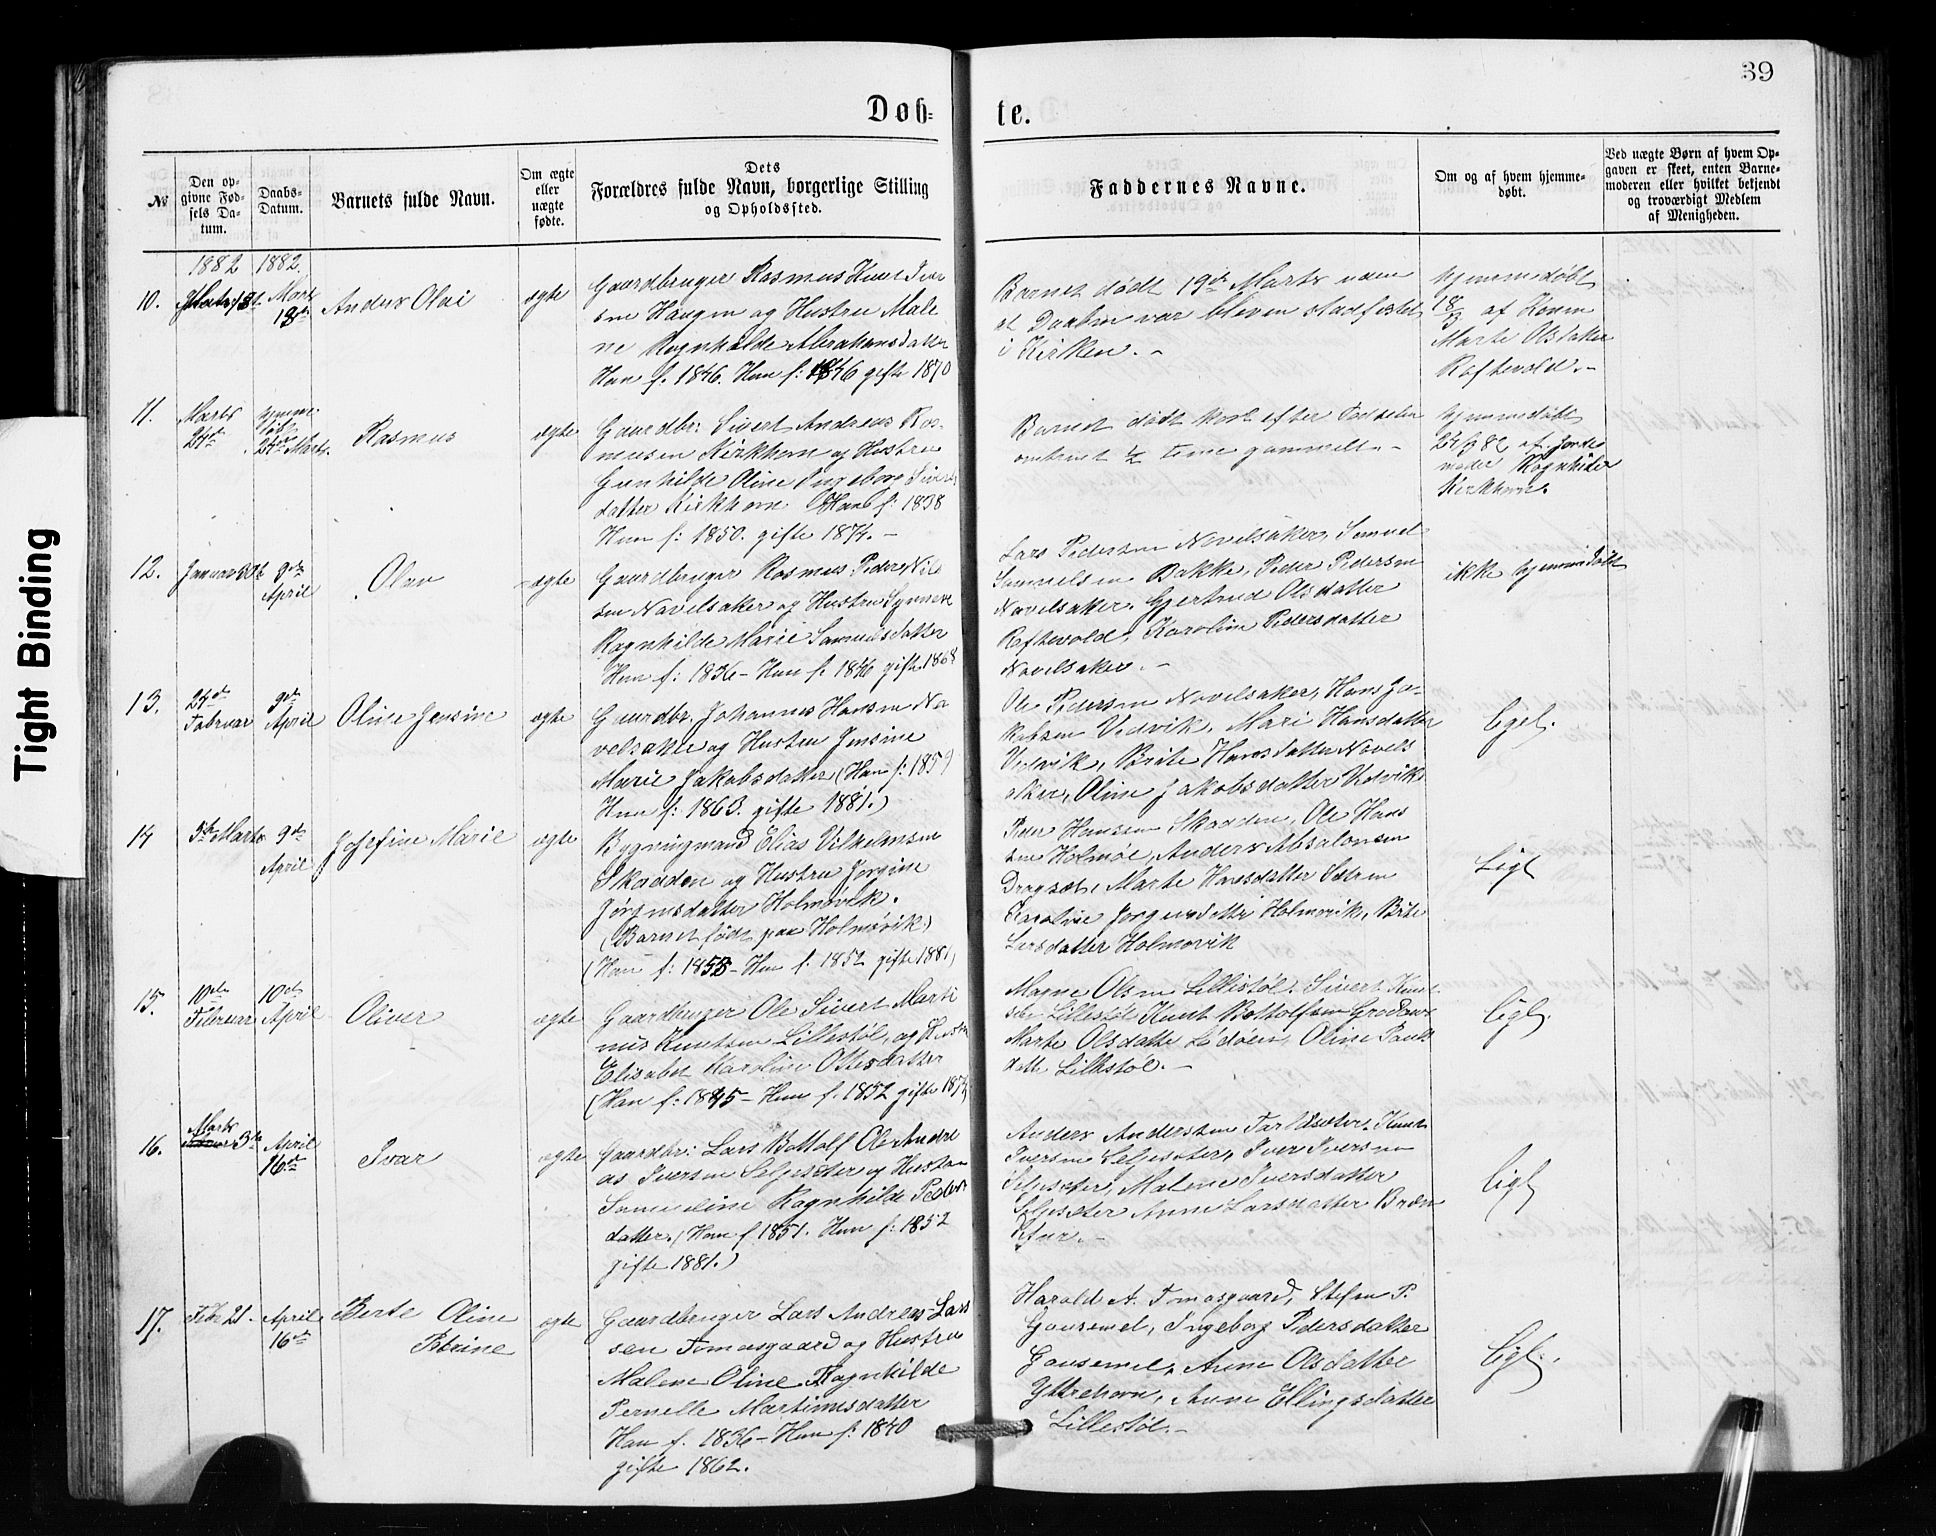 39
Døb- te.
№
Den opgivne Fødsels Datum.
Daabs-Datum.
Barnets fulde Navn.
Om ægte eller uægte fødte.
Dets Forældres fulde Navn, borgerlige Stilling og Opholdssted.
Faddernes Navne.
Om og af hvem hjemmedøbt.
Ved uægte Børn af hvem Opgaven er skeet, enten Barnemoderen eller hvilket bekjendt og troværdigt Medlem af Menigheden.
1882 1882.
10.
Marts
Anders Olai
ægte
Gaardbruger Rasmus Knut Iver
sen Haugen og Hustru Male
ne Ragnhilde Abrahamsdatter
Han f. 1846. Hun f: 1846 gifte 1870
Barnet dødt 19de Marts uden
at Daaben var bleven stadfestet
i Kirken. -
hjemmedøbt
18/3 af Konen
Marte Olsdatter
Raftevold. -
11.
Marts
24de
hjemme-
døbt
24de Marts.
Rasmus
ægte
Gaardbr: Sivert Andreas Ras-
musen Kirkhorn og Hustru
Gunhilde Oline Ingeborg Siverts
datter Kirkhorn Han f: 1838
Hun f: 1850. gifte 1874. -
Barnet dødt kort efter Fødselen
omtrent 1/2 time gammelt. -
hjemmedøbt
24/3 82 af Jorde
moder Ragnhilde
Kirkhorn.
12.
Januar 30te
9de
April
Olav
ægte
Gaardbruger Rasmus Peder Nil
sen Navelsaker og Hustru Synneve
Ragnhilde Marie Samuelsdatter
Han f: 1836 - Hun f. 1846 gifte 1868
Lars Pedersen Navelsaker, Samuel
Samuelsen Bakke, Peder Pedersen
Navelsaker. Gjertrud Olsdatter
Raftevold, Karoline Pedersdatter
Navelsaker. -
ikke hjemmedøbt
13.
24de
Februar
9de
April
Oline Jensine
ægte
Gaardbr. Johannes Hansen Na
velsaker og Hustru Jensine
Marie Jakobsdatter (Han f: 1859
Hun f: 1863. gifte 1881.)
Ole Pedersen Navelsaker, Hans Ja-
kobsen Vedvik. Mari Hansdatter
Vedvik, Brite Hansdatter Navels
aker, Oline Jakobsdatter Vedvik
Ligel.
14
5te Marts
9de
April
Josefine Marie
ægte
Bygningmand Elias Vilhelmsen
Skadden og Hustru Jorgine
Jørgensdatter Holmøvik.
(Barnet født paa Holmøvik)
(Han f: 1853 - Hun f. 1852 gifte 1881)
Peder Hansen Skadden, Ole Hans
sen Holmøe, Anders Absalonsen
Dragset, Marte Hansdatter Sætren
Karoline Jorgensdatter Holmøvik, Brite
Larsdatter Holmovik
Ligl
15.
10de
Februar
10de
April
Oliver
ægte
Gaardbruger Ole Sivert Marti
nus Knutsen Lillestøl, og Hustru
Elisabet Karoline Ottesdatter
(Han f: 1845 - Hun f. 1852 gifte
Magne Olsen Lillestøl. Sivert Knut
sen Lillestøl Knut Bottolfsen
Marte Olsdatter Lødøen, Oline Pauls
datter Lillestøl. -
Ligl.
16.
Marts
3te
April
16de
Ivar
ægte
Gaardbr: Lars Bottolf Ole Andre
as Iversen Seljeseter og Hustru
Samueline Ragnhilde Peders
datter. (Han f 1851. Hun f: 1852
gifte 1881.)
Anders Andersen Taraldseter. Knut
Iversen Seljeseter, Iver Iversen
Seljeseter, Malene Iversdatter
Seljeseter Anne Larsdatter
Ligl
17.
Febr 21.
April
16de
Berte Oline
Petrine
ægte
Gaardbruger Lars Andreas Lars
sen Tomasgaard og Hustru
Malene Oline Ragnhilde
Pernelle Martinusdatter
Han f. 1836 - Hun f: 1840
gifte 1862.
Harald A. Tomasgaard, Stefen P.
Gausemel, Ingeborg Pedersdatter
Gausemel, Anne Olsdatter
Yttrehorn, Anne Ellingsdatter
Lillestøl. -
Ligl.
Tight Binding